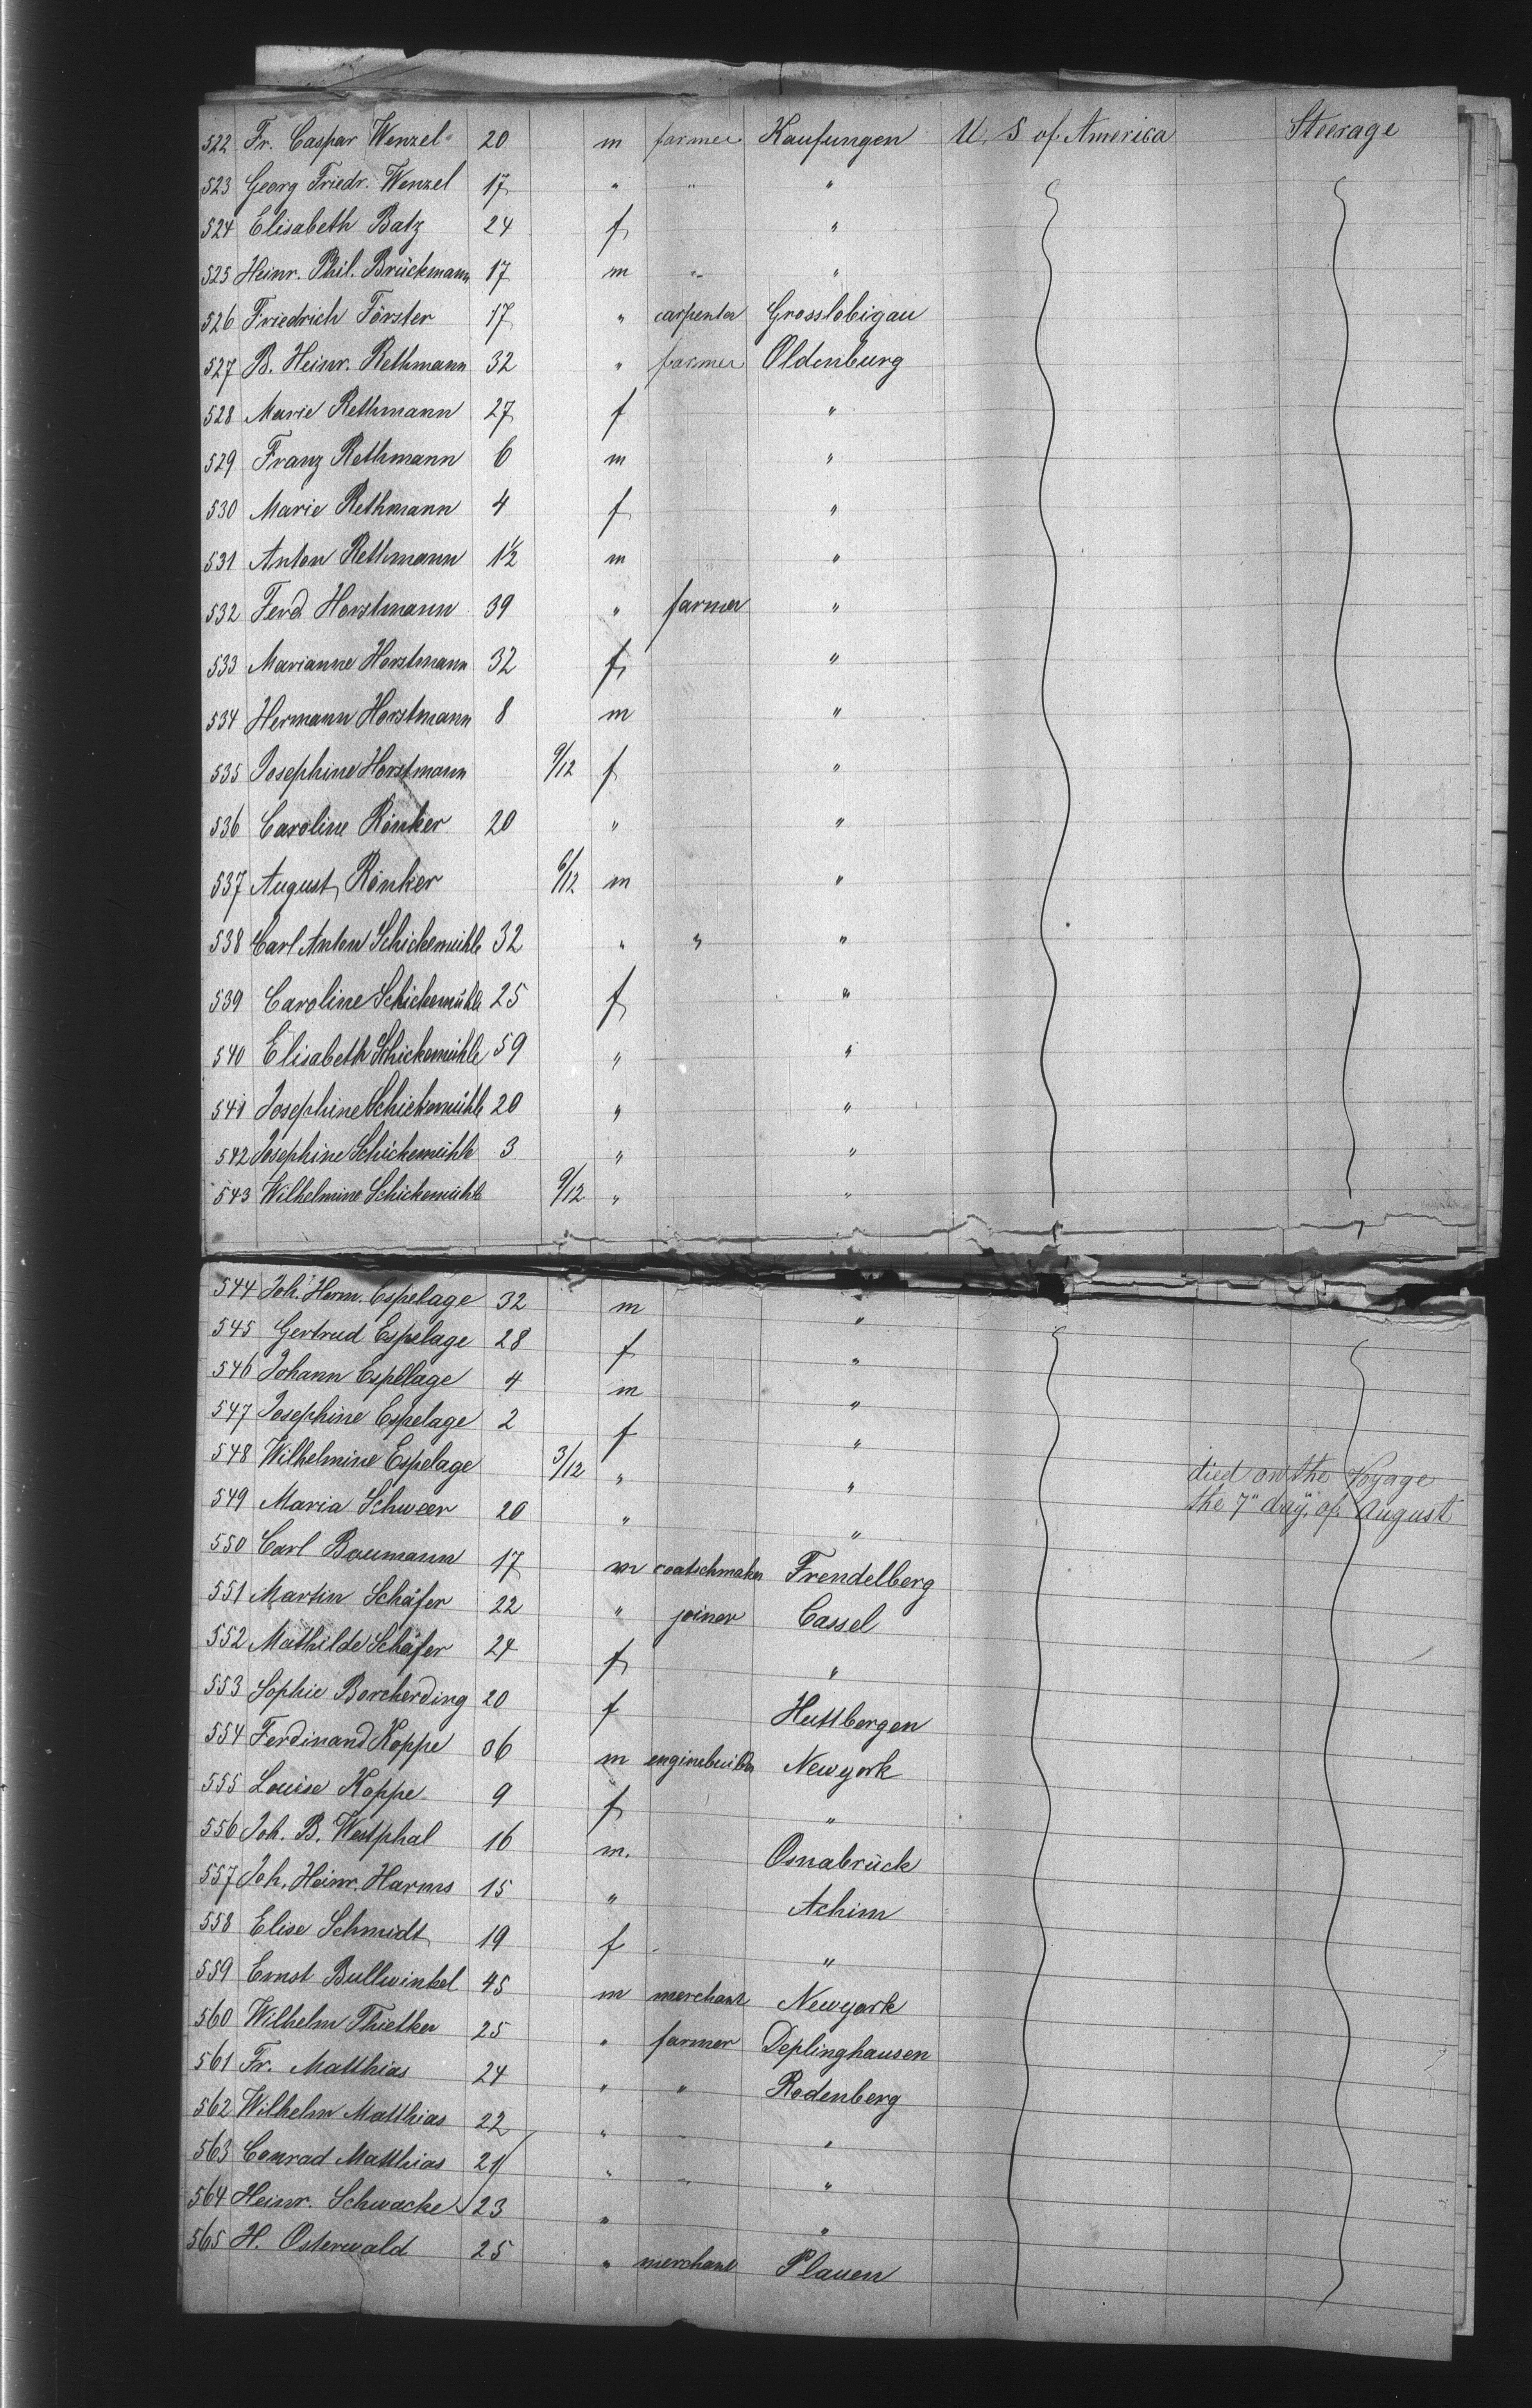 522 Fr. Caspar Wenzel 20 m farmer Kaufungen U. S of America Steerage
523 Georg Friedr. Wenzel 17 " " "
524 Elisabeth Batz 24 f "
525 Heinr. Phil. Brückmann 17 m " "
526 Friedrich Förster 17 " carpenter Grosslobigau
527 B. Heinr. Rethmann 32 " farmer Oldenburg
528 Marie Rethmann 27 f "
529 Franz Rethmann 6 m "
530 Marie Rethmann 4 f "
531 Anton Rethmann 1½ m "
532 Ferd. Horstmann 39 " farmer "
533 Marianne Horstmann 32 f "
534 Hermann Horstmann 8 m "
535 Josephine Horstmann 9/12 f "
536 Caroline Rönker 20 " "
537 August Rönker 6/12 m "
538 Carl Anton Schickemühle 32 " " "
539 Caroline Schickemühle 25 f "
540 Elisabeth Schickemühle 59 " "
541 Josephine Schickemühle 20 " "
542 Josephine Schickemühle 3 " "
543 Wilhelmine Schickemühle 9/12 " "
544 Joh. Herm. Espelage 32 m "
545 Gertrud Espelage 28 f "
546 Johann Espelage 4 m "
547 Josephine Espelage 2 f "
548 Wilhelmine Espelage 3/12 " " died on the Voyage
the 7" day of August
549 Maria Schweer 20 " "
550 Carl Baumann 17 m coatschmaker Frendelberg
551 Martin Schäfer 22 " joiner Cassel
552 Mathilde Schäfer 24 f "
553 Sophie Borcherding 20 f Huttbergen
554 Ferdinand Koppe 36 m enginebuilder Newyork
555 Louise Koppe 9 f "
556 Joh. B. Westphal 16 m. Osnabrück
557 Joh. Heinr. Harms 15 " Achim
558 Elise Schmidt 19 f "
559 Ernst Bullwinkel 45 m merchant Newyork
560 Wilhelm Thielker 25 " farmer Deplinghausen
561 Fr. Matthias 24 " " Rodenberg
562 Wilhelm Matthias 22 " " "
563 Conrad Matthias 21 " " "
564 Heinr. Schwacke 23 " "
565 H. Osterwald 25 " merchant Plauen